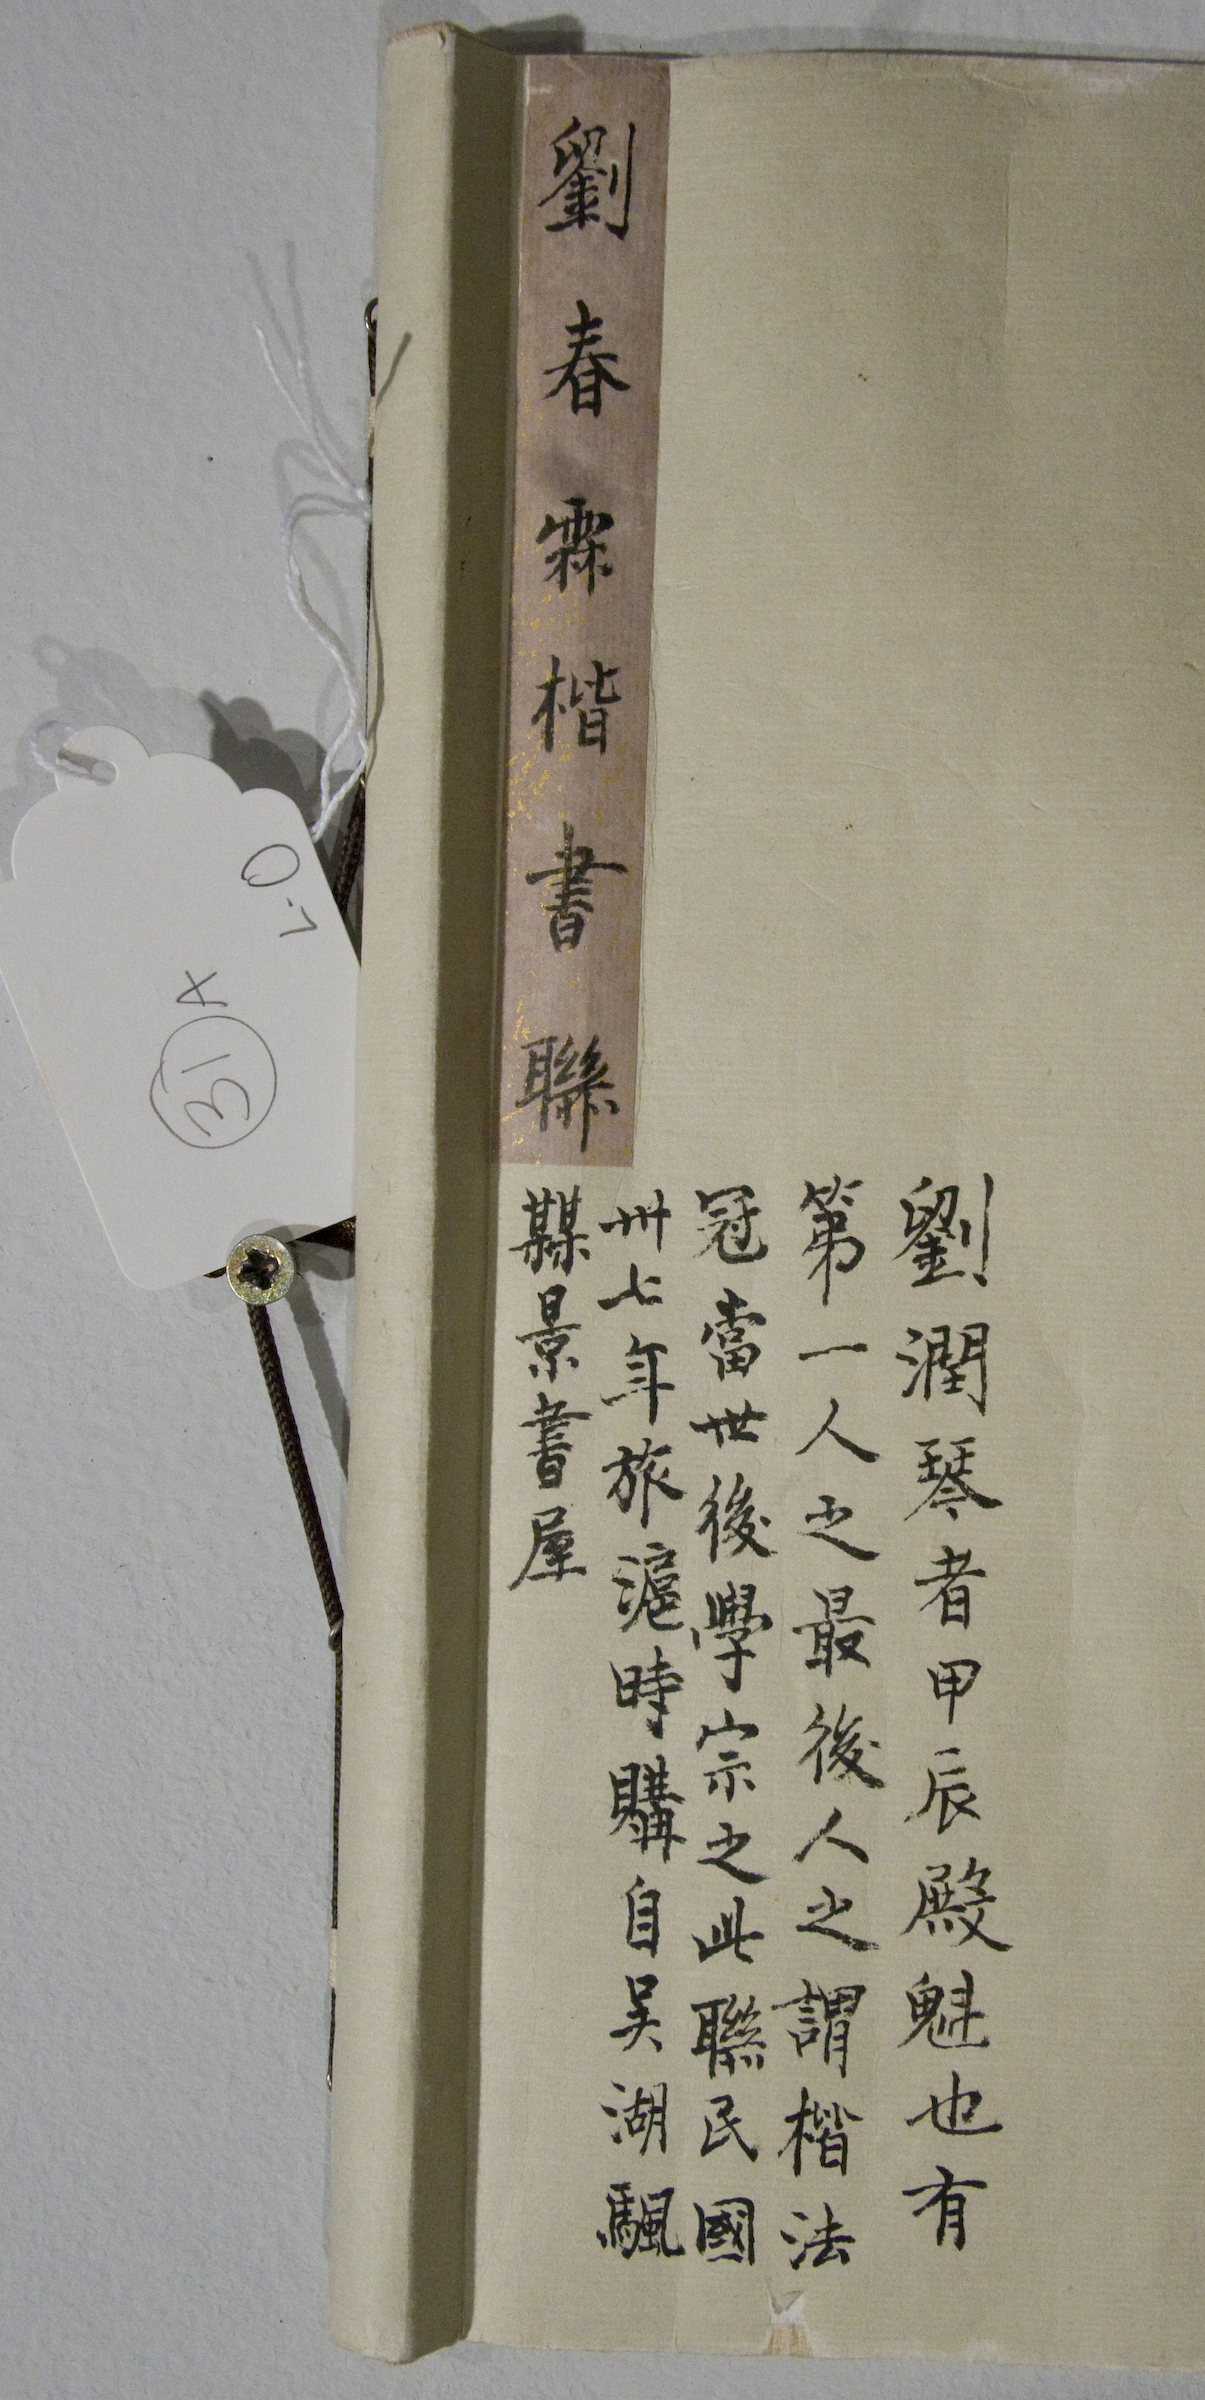 劉春霖楷書聯
劉潤琴者甲辰殿魁也有
第一人之最後人之謂楷法
冠當世後學宗之此聯民國
卅七年旅滬時購自吳湖颿
景書屋
31 A